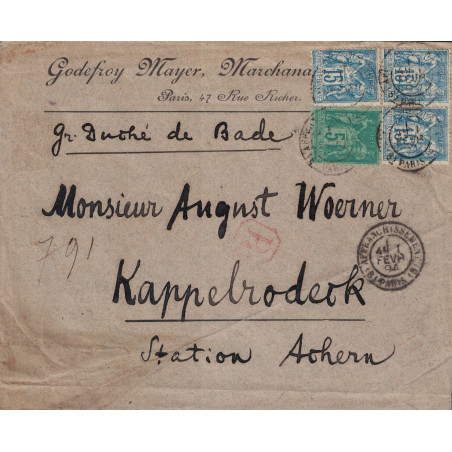 Godefroy Mayer, Marchand
Paris, 47 Rue Richer.
Gr. Duché de Bade
Monsieur August Woerner
791
Kappelrodeck
Station Achern
AFFRANCHISSEMENTS
FEVR
94
PARIS
15
15
15
5
PARIS